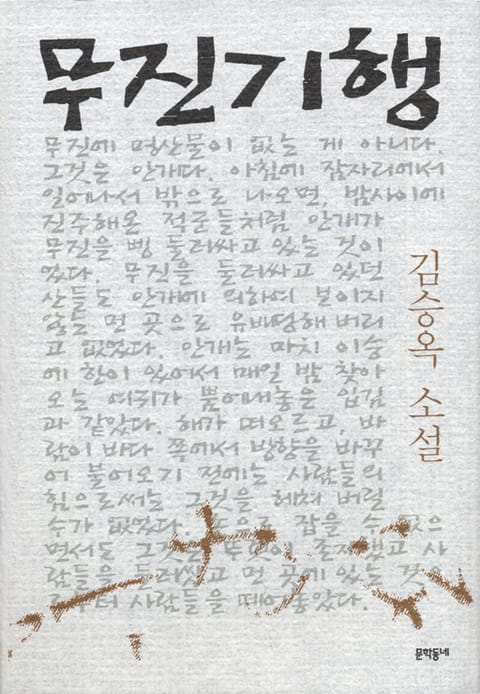 무진기행
무진에 명산물이 없는 게 아니다.
그것은 안개다. 아침에 잠자리에서
일어나서 밖으로 나오면, 밤사이에
진주해온 적군들처럼 안개가
무진을 삥 둘러싸고 있는 것이
었다. 무진을 둘러싸고 있던
산들도 안개에 의하여 보이지
않는 먼 곳으로 유배당해 버리
고 없었다. 안개는 마치 이승
에 한이 있어서 매일 밤 찾아
오는 여귀가 뿜어내놓은 입김
과 같았다. 해가 떠오르고, 바
람이 바다 쪽에서 방향을 바꾸
어 불어오기 전에는 사람들의
힘으로써는 그것을 헤쳐 버릴
수가 없었다. 손으로 잡을 수 없으
면서도 그것은 뚜렷이 존재했고 사
람들을 둘러쌌고 먼 곳에 있는 것으
로부터 사람들을 떼어놓았다.
김승옥 소설
문학동네